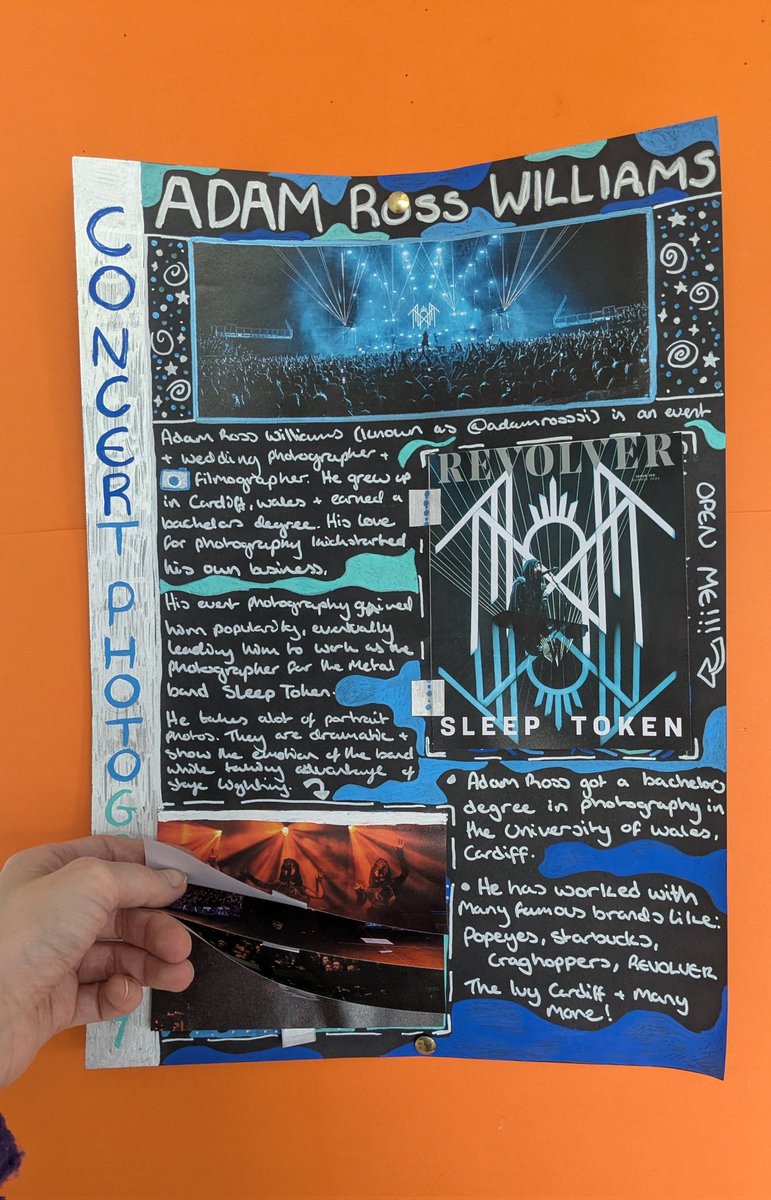 ADAM ROSS WILLIAMS
CONCERT PHOTOG
Adam Ross Williams (known as @adamrosssi) is an event
+ wedding photographer +
filmographer. He grew up
in Cardiff, Wales + earned a
bachelors degree. His love
for photography kickstarted
his own business.
His event photography gained
him popularity, eventually
leading him to work as the
photographer for the Metal
band Sleep Token.
He takes alot of portrait
photos. They are dramatic +
show the emotion of the band
while taking advantage of
stage lighting.
REVOLVER
SLEEP TOKEN
OPEN ME!!!
• Adam Ross got a bachelors
degree in photography in
the University of Wales,
Cardiff.
• He has worked with
Many famous brands like:
Popeyes, Starbucks,
Craghoppers, REVOLVER
The Ivy Cardiff + Many
More!